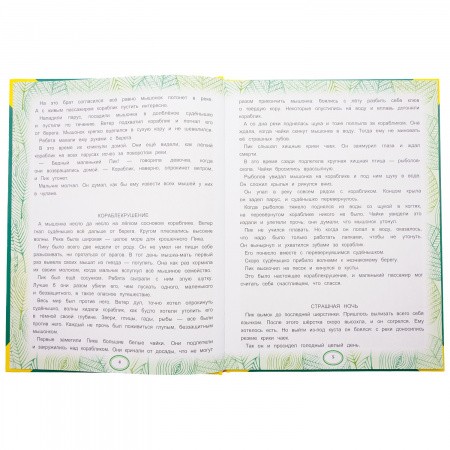 Но это брат оставался всё равно мышонок погонял в реке.
А с живым пассажиром кораблик пустить интересно.
Наладили парус, посадили мышонка в долблёное судёнышко
и пустили по течению. Ветер подхватил кораблик и погнал его
от берега. Мышонок крепко вцепился в сухую кору и не шевелился.
Ребята махали ему руками с берега.
В это время их кликнули домой. Они ещё видели, как лёгкий
кораблик на всех парусах исчез за поворотом реки.
— Бедный маленький Пик! — говорила девочка, когда
они возвращались домой. — Кораблик, наверно, опрокинет ветром,
и Пик утонет.
Мальчик молчал. Он думал, как бы ему извести всех мышей у них
в чулане.
КОРАБЛЕКРУШЕНИЕ
А мышонка несло да несло на лёгком сосновом кораблике. Ветер
гнал судёнышко всё дальше от берега. Кругом плескались высокие
волны. Река была широкая — целое море для крошечного Пика.
Пику было всего две недели от роду. Он не умел ни пищи себе
разыскивать, ни прятаться от врагов. В тот день мышка-мать первый
раз вывела своих мышат из гнезда — погулять. Она как раз кормила
их своим молоком, когда мальчик вспугнул всё мышиное семейство.
Пик был ещё сосунком. Ребята сыграли с ним злую шутку.
Лучше б они разом убили его, чем пускать одного, маленького
и беззащитного, в такое опасное путешествие.
Весь мир был против него. Ветер дул, точно хотел опрокинуть
судёнышко, волны кидали кораблик, как будто хотели утопить его
в тёмной своей глубине. Звери, птицы, гады, рыбы — все были
против него. Каждый не прочь был поживиться глупым, беззащитным
мышонком.
Первые заметили Пика большие белые чайки. Они подлетели
и закружились над корабликом. Они кричали от досады, что не могут
4
разом прикончить мышонка: боялись с лёту разбить себе клюв
о твёрдую кору. Некоторые опустились на воду и вплавь догоняли
кораблик.
А со дна реки поднялась щука и тоже поплыла за корабликом. Она
ждала, когда чайки скинут мышонка в воду. Тогда ему не миновать
её страшных зубов.
Пик слышал хищные крики чаек. Он зажмурил глаза и ждал
смерти.
В это время сзади подлетела крупная хищная птица — рыболов-
скопа. Чайки бросились врассыпную.
Рыболов увидал мышонка на кораблике и под ним щуку в воде.
Он сложил крылья и ринулся вниз.
Он упал в реку совсем рядом с корабликом. Концом крыла
он задел парус, и судёнышко перевернулось.
Когда рыболов тяжело поднялся из воды со щукой в когтях,
на перевернувшемся кораблике никого не было. Чайки увидели это
издали и улетели прочь: они думали, что мышонок утонул.
Пик не учился плавать. Но когда он попал в воду, оказалось,
что надо было только работать лапками, чтобы не утонуть.
Он вынырнул и ухватился зубами за кораблик.
Его понесло вместе с перевернувшимся судёнышком.
Скоро судёнышко прибило волнами к незнакомому берегу.
Пик выскочил на песок и шмыгнул в кусты.
Это было настоящее кораблекрушение, и маленький пассажир мог
считать себя счастливцем, что спасся.
СТРАШНАЯ НОЧЬ
Пик вымок до последней шерстинки. Пришлось вылизать всего себя
язычком. После этого шёрстка скоро высохла, и он согрелся. Ему
хотелось есть. Но выйти из-под куста он боялся: с реки доносились
резкие крики чаек.
Так он и просидел голодный целый день.
5